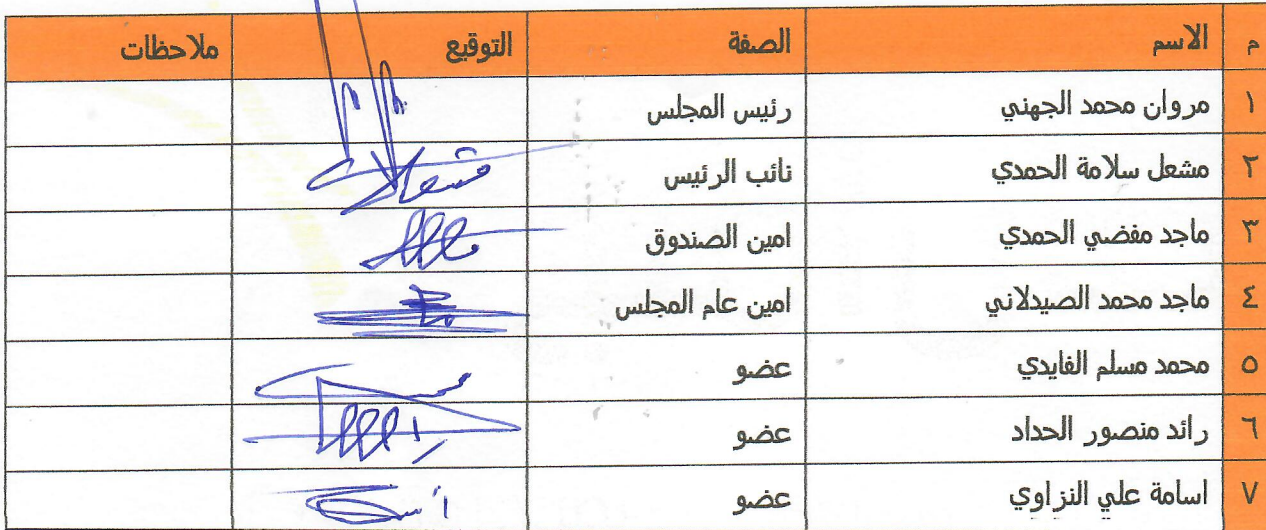 م الاسم الصفة التوقيع ملاحظات
١ مروان محمد الجهني رئيس المجلس
٢ مشعل سلامة الحمدي نائب الرئيس
٣ ماجد مفضي الحمدي امين الصندوق
٤ ماجد محمد الصيدلاني امين عام المجلس
٥ محمد مسلم الفايدي عضو
٦ رائد منصور الحداد عضو
٧ اسامة علي النزاوي عضو